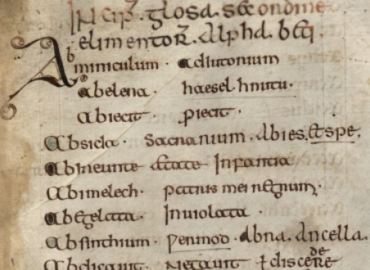 Incip glosa secondine
elimentor. Alpha. beti
Abminiculum. adiutorium
abelena. haeselhnutu.
abiecit. proiecit.
Absida. sacrarium. Abies. etspe.
abineunte aetate Infantia
abimelech. patris mei regnum.
abegelata. Inviolata.
Absinthium. permod. Abna. Ancella.
Abdicavit negavit discere